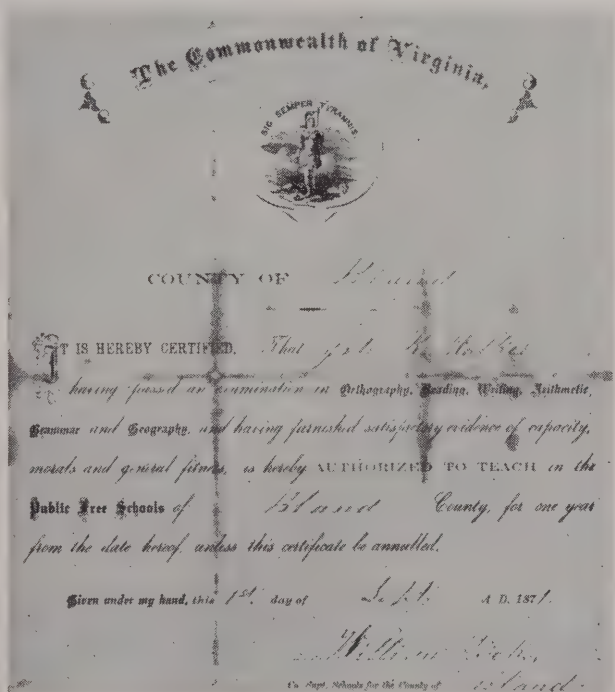 The Commonwealth of Virginia,
SIC SEMPER TYRANNIS.
COUNTY OF Bland
IT IS HEREBY CERTIFIED, That
having passed an examination in Orthography, Reading, Writing, Arithmetic,
Grammar and Geography, and having furnished satisfactory evidence of capacity,
morals and general fitness, is hereby AUTHORIZED TO TEACH in the
Public Free Schools of Bland County, for one year
from the date hereof, unless this certificate be annulled.
Given under my hand, this 1st day of Sept. A. D. 1871.
William
Co. Supt. Schools for the County of Bland